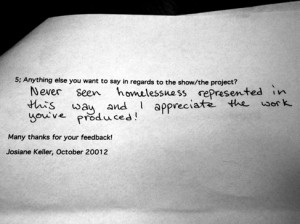 5; Anything else you want to say in regards to the show/the project?
Never seen homelessness represented in
this way and I appreciate the work
you've produced!
Many thanks for your feedback!
Josiane Keller, October 20012